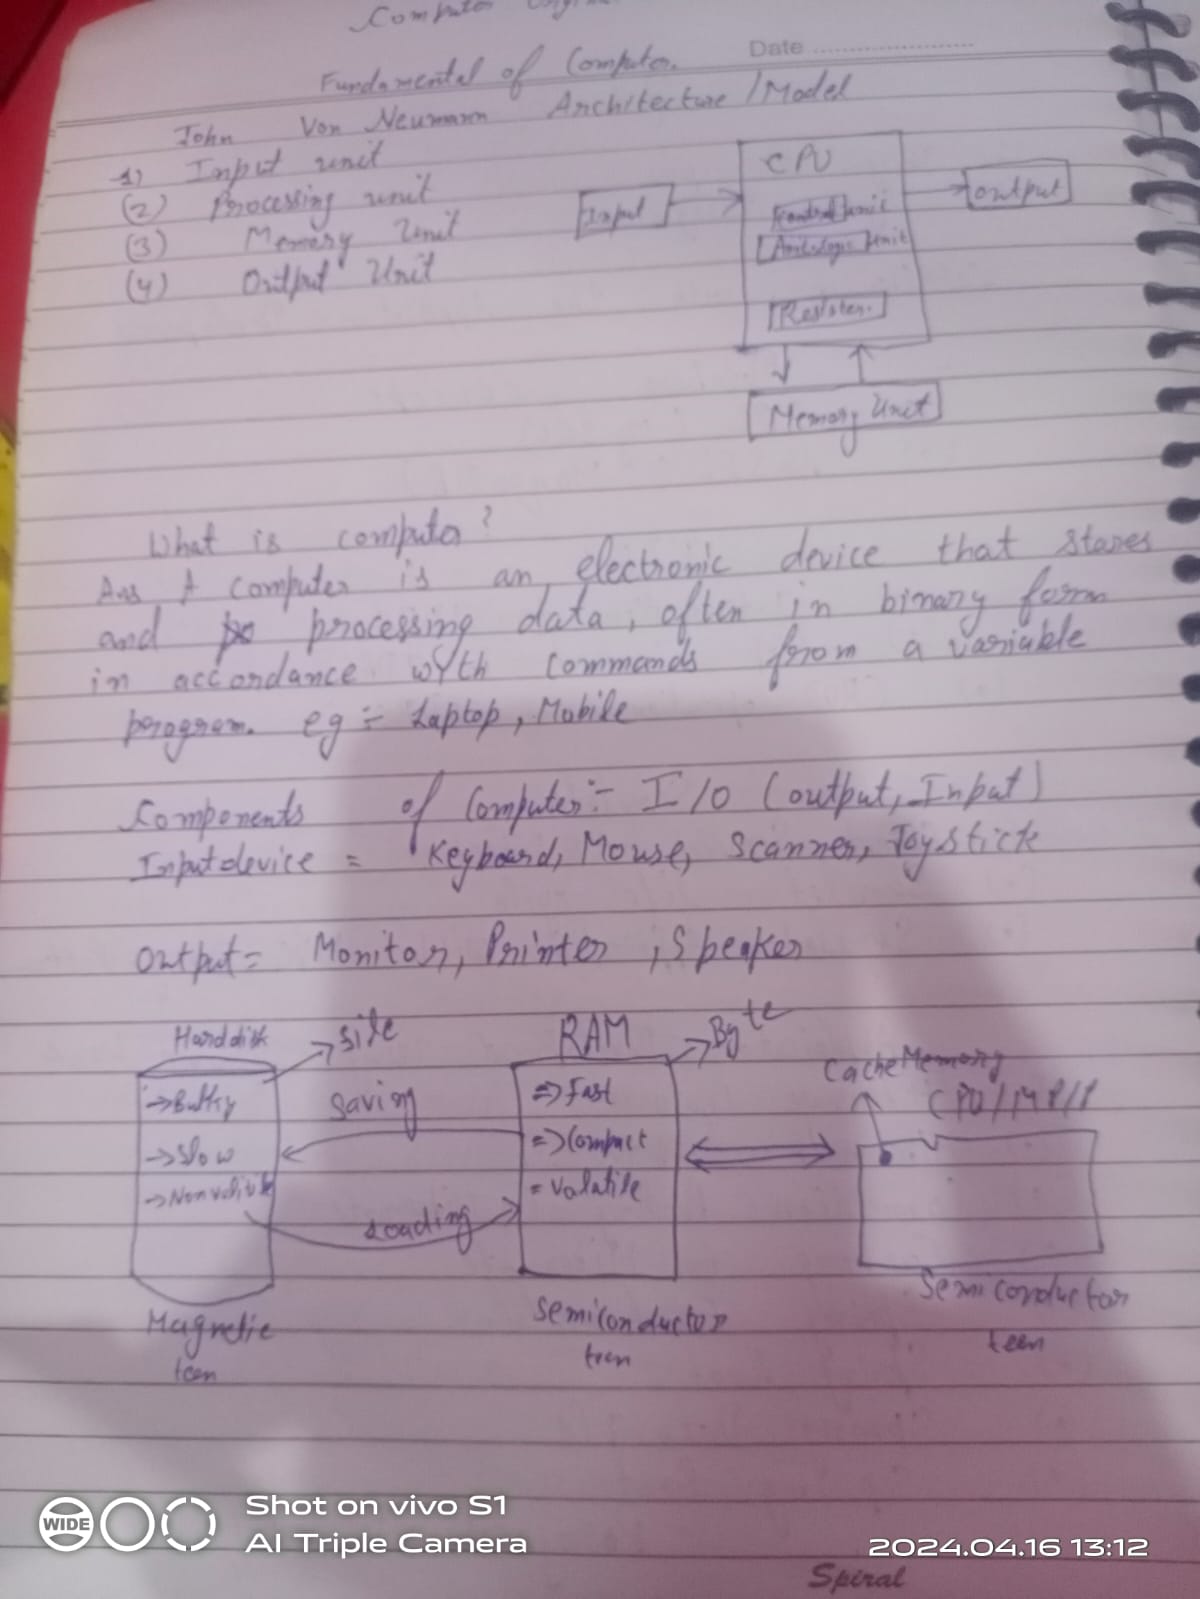 Computer
Date
Fundamental of Computer.
John Von Neumann Architecture / Model
1) Input unit
(2) Processing unit
(3) Memory Unit
(4) Output Unit
Input
CPU
Control unit
Unit
Output
Memory Unit
What is computer?
Ans A computer is an electronic device that stores
and processing data, often in binary form
in accordance wyth commands from a variable
program. eg :- Laptop, Mobile
Components of Computer :- I/O (output, Input)
Input device = Keyboard, Mouse, Scanner, Joystick
Output = Monitor, Printer, Speaker
Hard disk
→ Bulky
→ Slow
Magnetic
Saving
Loading
RAM
Byte
=> Fast
=> Compact
= Volatile
Semiconductor
Cache Memory
CPU/MP/
Semiconductor
WIDE
Shot on vivo S1
AI Triple Camera
2024.04.16 13:12
Spiral